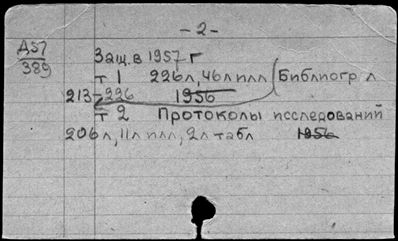 - 2 -
Д57
389
Защ. в 1957 г
т 1 226 л, 46 л илл (Библиогр л
213-226) 1956
т 2 Протоколы исследований
206 л, 11 л илл, 2 л табл 1956